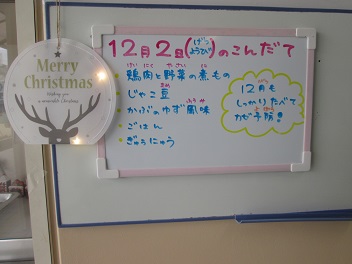 Merry
Christmas
Wishing you
a wonderful Christmas
12月2日(げつようび)のこんだて
・鶏肉と野菜の煮もの
・じゃこ豆
・かぶのゆず風味
・ごはん
・ぎゅうにゅう
12月も
しっかりたべて
かぜ予防!